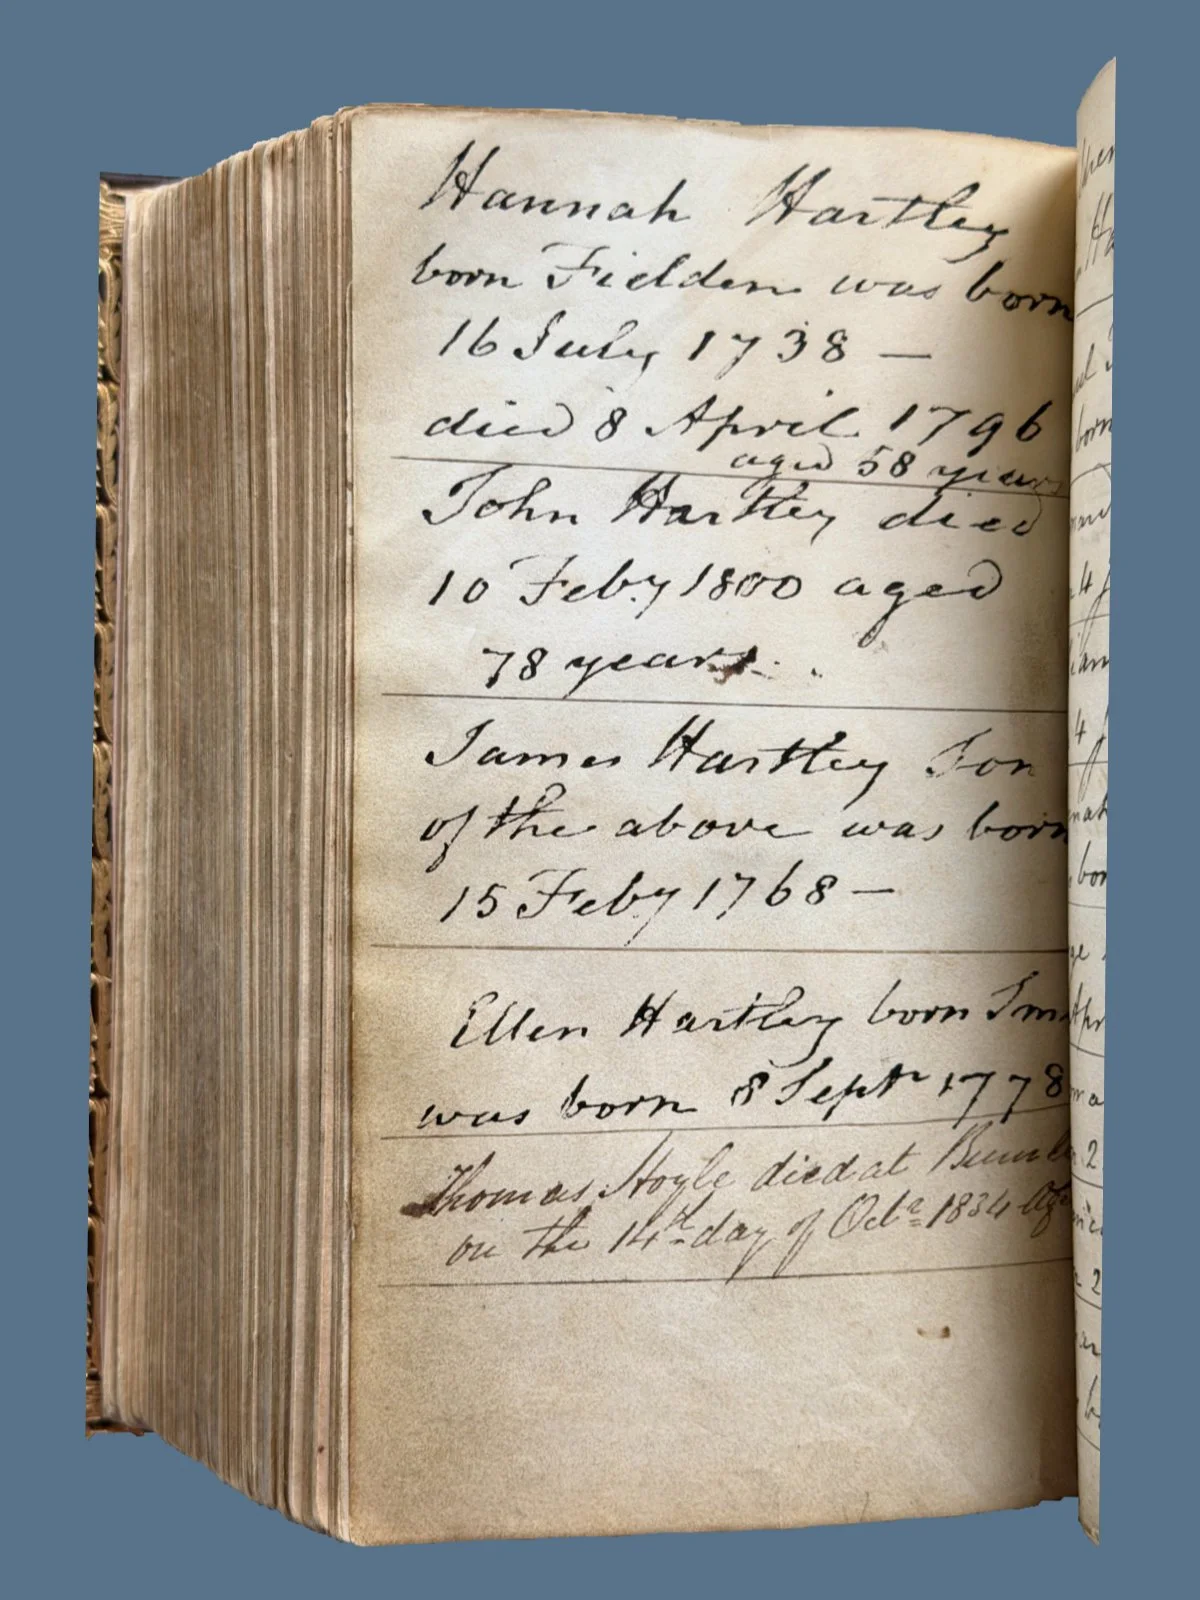 Hannah Hartley
born Fielden was born
16 July 1738 —
died 8 April 1796
aged 58 years
John Hartley died
10 Feby 1800 aged
78 years.
James Hartley Son
of the above was born
15 Feby 1768 —
Ellen Hartley born
was born 8 Septr 1778
Thomas Hoyle died at
on the 14th day of Octr 1834